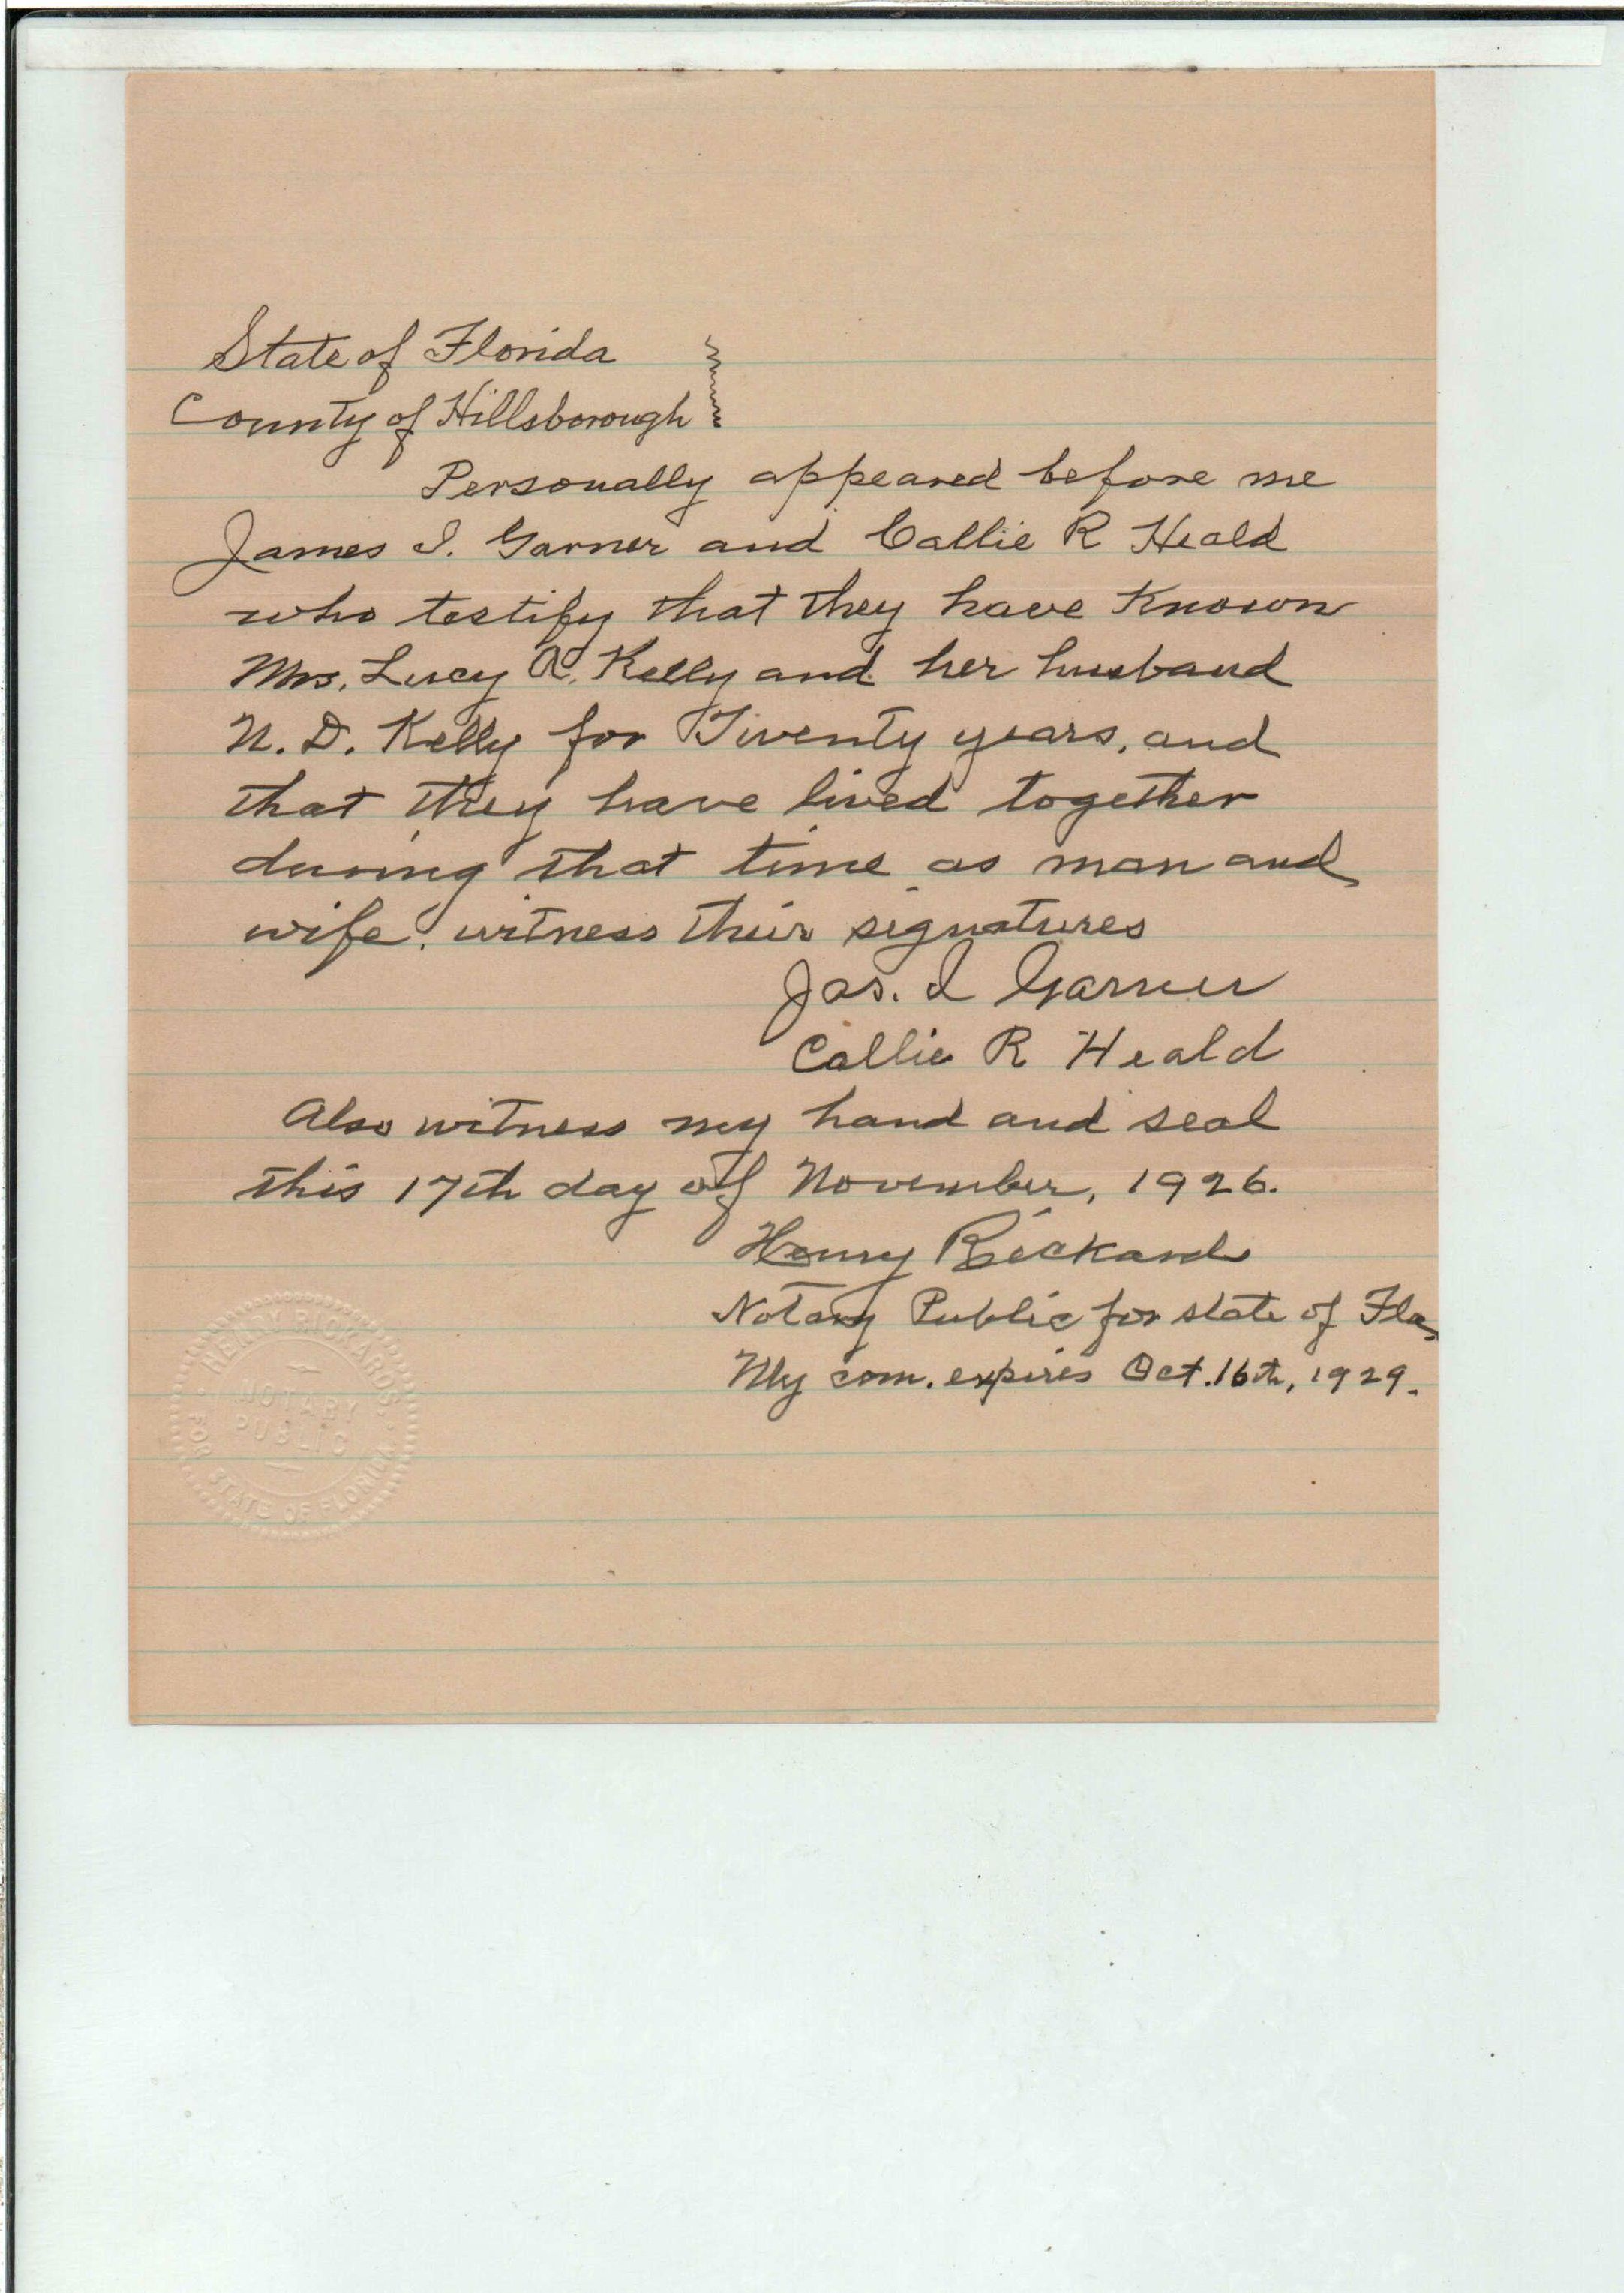 State of Florida
County of Hillsborough
Personally appeared before me
James I. Garner and Callie R Heald
who testify that they have known
Mrs. Lucy A. Kelly and her husband
N. D. Kelly for Twenty years, and
that they have lived together
during that time as man and
wife. witness their signatures
Jas. I Garner
Callie R Heald
Also witness my hand and seal
this 17th day of November, 1926.
Henry Rickards
Notary Public for state of Fla,
My com. expires Oct. 16th, 1929.
HENRY RICKARDS
NOTARY
PUBLIC
FOR STATE OF FLORIDA